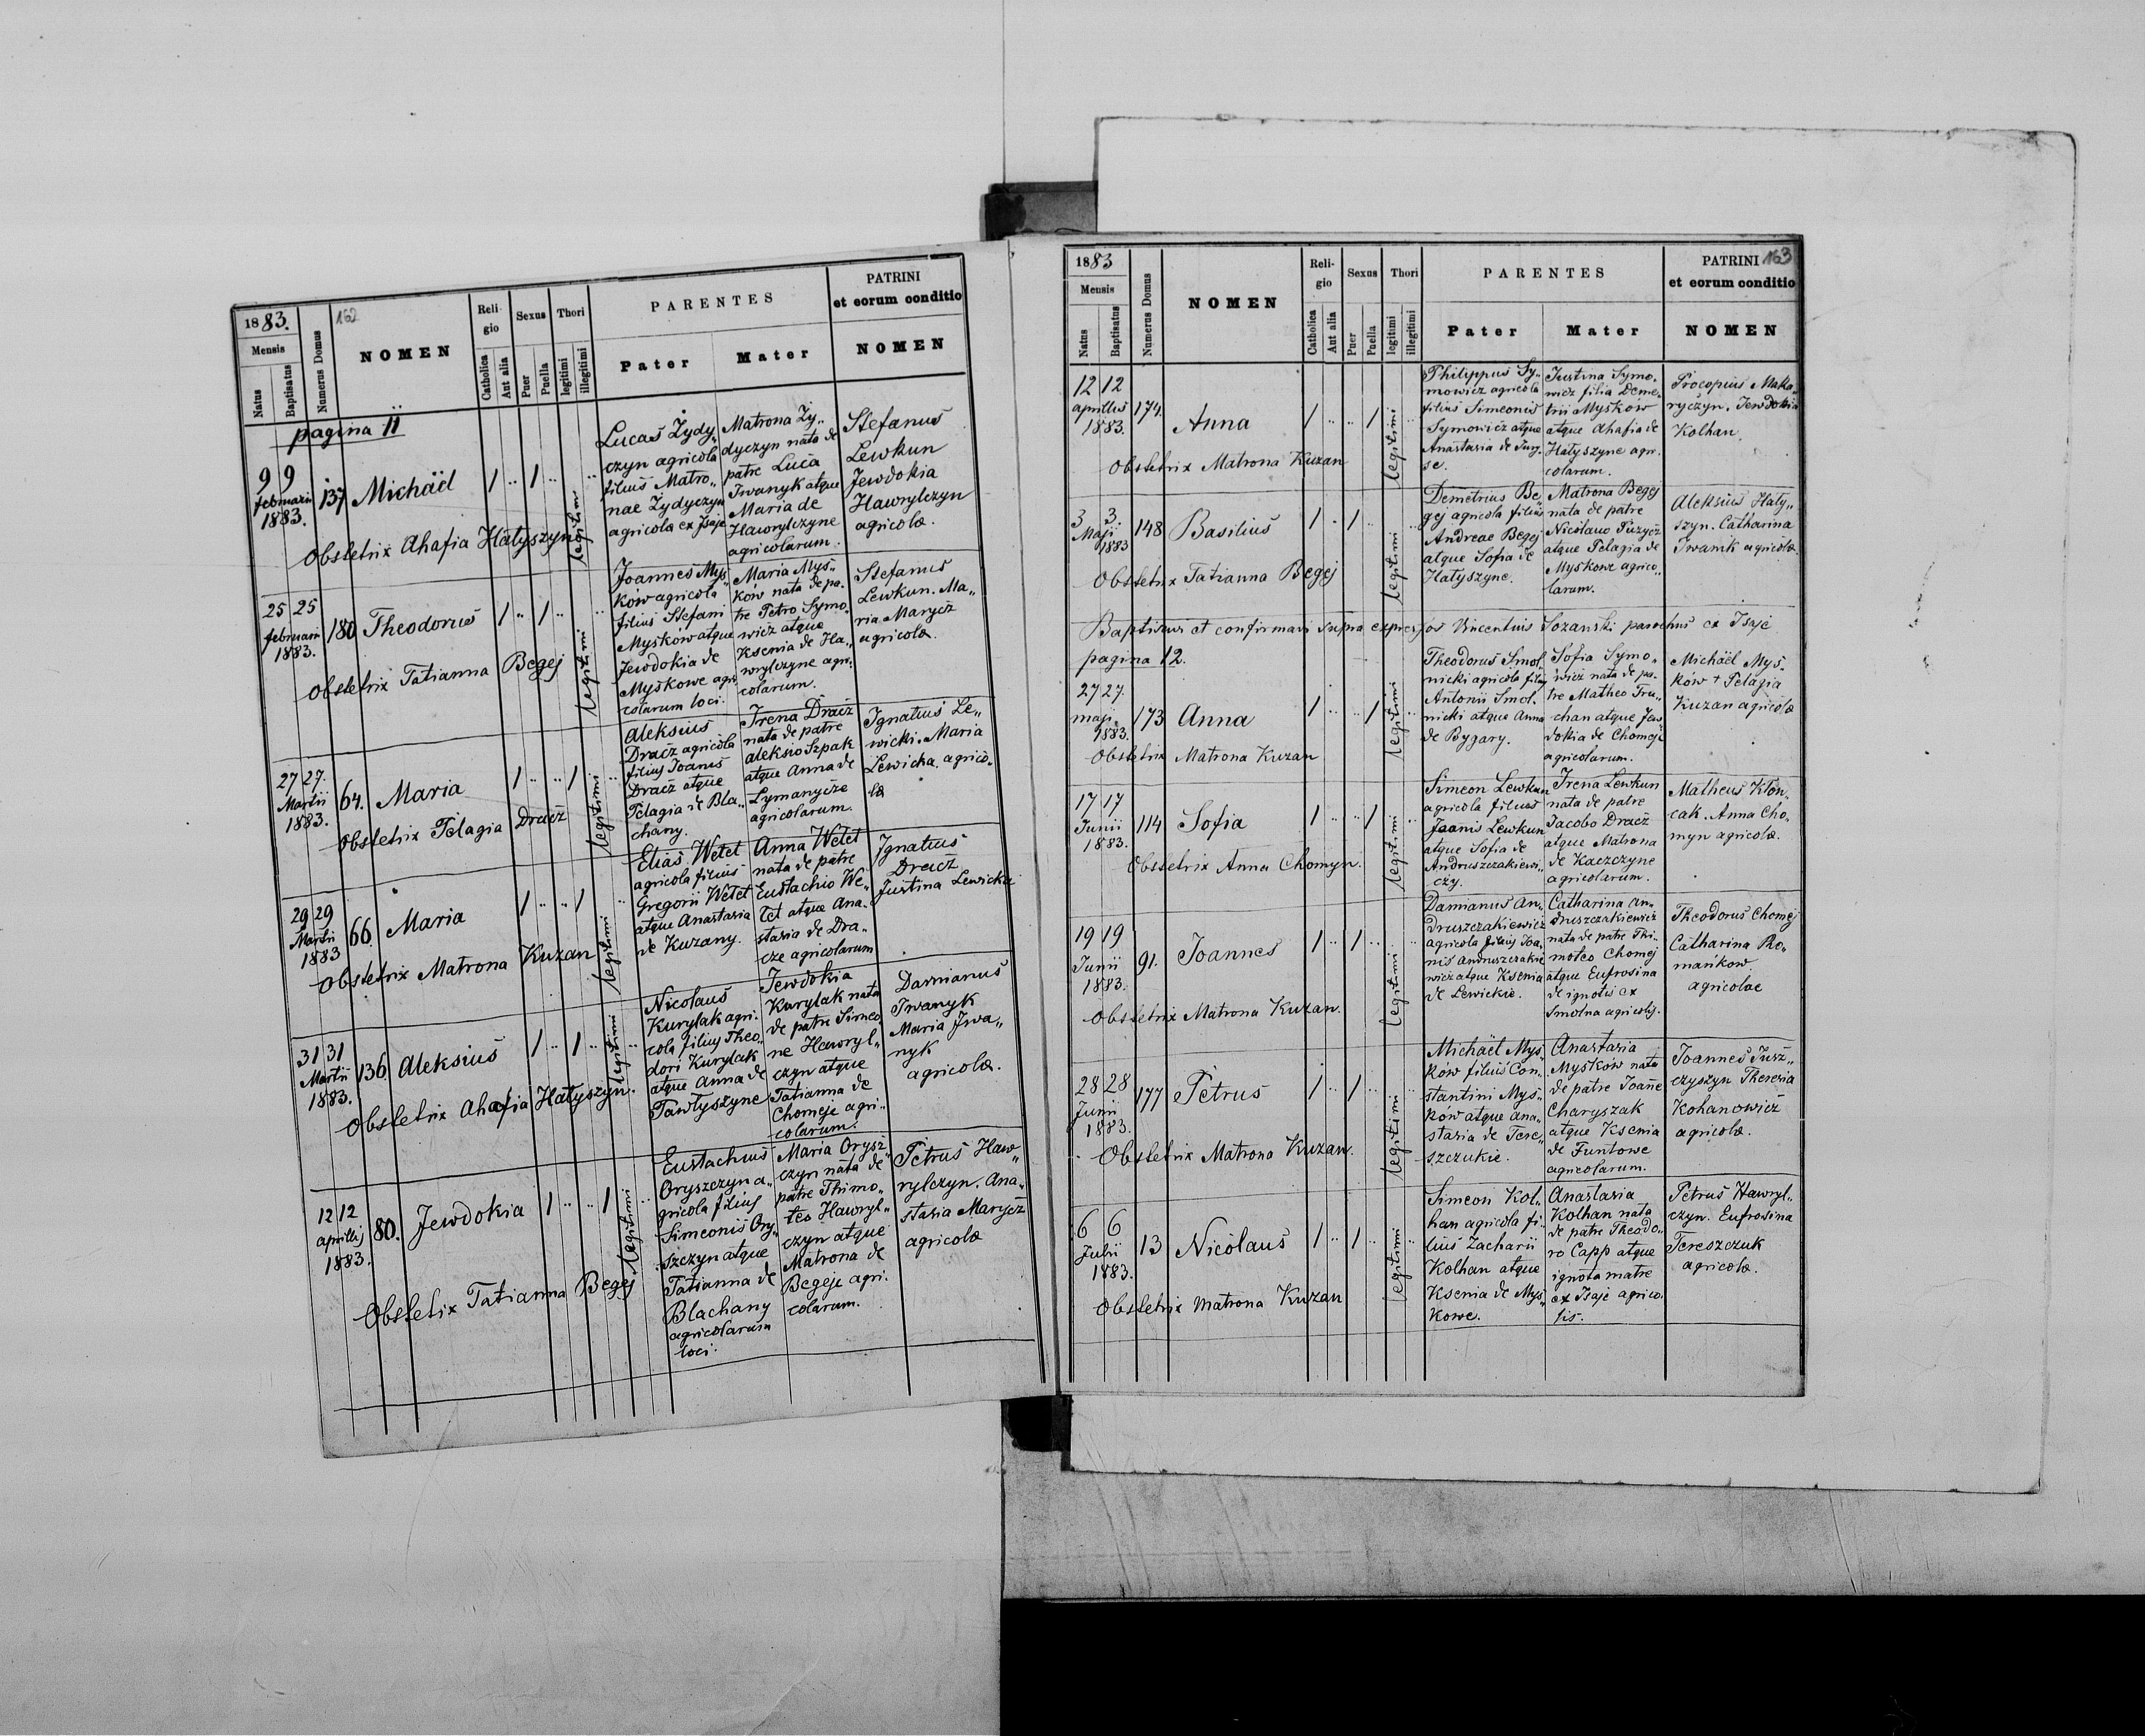 1883.
162
Mensis
Natus
Baptisatus
Numerus Domus
NOMEN
Reli-
gio
Catholica
Aut alia
Sexus
Puer
Puella
Thori
legitimi
illegitimi
PARENTES
Pater
Mater
PATRINI
et eorum conditio
NOMEN
pagina 11
9 9
februarii
1883.
137
Michaël
1 .. 1 ..
legitimi
Lucas Żydy„
czyn agricola
filius Matro„
nae Żydyczyn
agricola ex Isaje
Matrona Ży„
dyczyn nata de
patre Luca
Iwanyk atque
Maria de
Hawrylczyne
agricolarum.
Stefanus
Lewkun
Jewdokia
Hawrylczyn
agricolæ.
Obstetrix Ahafia Hatyszyn
25 25
februarii
1883.
180
Theodorus
1 .. 1 ..
legitimi
Joannes Mys„
ków agricola
filius Stefani
Myskow atque
Jewdokia de
Myskowe agri„
colarum loci.
Maria Mys„
kow nata de pa„
tre Petro Symo„
wicz atque
Ksenia de Ha„
wrylczyne agri„
colarum.
Stefanus
Lewkun. Ma„
ria Marycz
agricolæ.
Obstetrix Tatianna Begej
27 27.
Martii
1883.
64.
Maria
1 .. .. 1
legitimi
Aleksius
Dracz agricola
filius Joanis
Dracz atque
Pelagia de Bla„
chany.
Irena Dracz
nata de patre
Aleksio Szpak
atque Anna de
Lymanycze
agricolarum.
Ignatius Le„
wicki. Maria
Lewicka. agrico„
læ
Obstetrix Pelagia Dracz
29 29
Martii
1883
66.
Maria
1 .. .. 1
legitimi
Elias Wetet
agricola filius
Gregorii Wetet
atque Anastasia
de Kuzany.
Anna Wetet
nata de patre
Eustachio We„
tet atque Ana„
stasia de Dra„
cze agricolarum
Ignatius
Dracz
Justina Lewicka
Obstetrix Matrona Kuzan
31 31
Martii
1883.
136.
Aleksius
1 .. 1 ..
legitimi
Nicolaus
Kurylak agri„
cola filius Theo„
dori Kurylak
atque Anna de
Pawlyszyne
Jewdokia
Kurylak nata
de patre Simeo
ne Hawryl„
czyn atque
Tatianna de
Chomeje agri„
colarum.
Damianus
Iwanyk
Maria Iwa„
nyk
agricolæ.
Obstetrix Ahafia Hatyszyn.
12 12
aprillij
1883.
80.
Jewdokia
1 .. .. 1
legitimi
Eustachius
Oryszczyn a„
gricola filius
Simeonis Ory„
szczyn atque
Tatianna de
Blachany
agricolarum
loci.
Maria Orysz„
czyn nata de
patre Thimo„
teo Hawryl„
czyn atque
Matrona de
Begeje agri„
colarum.
Petrus Haw„
rylczyn. Ana„
stasia Marycz
agricolæ
Obstetix Tatianna Begej
1883
163
Mensis
Natus
Baptisatus
Numerus Domus
NOMEN
Reli-
gio
Catholica
Aut alia
Sexus
Puer
Puella
Thori
legitimi
illegitimi
PARENTES
Pater
Mater
PATRINI
et eorum conditio
NOMEN
12 12
aprillus
1883.
174.
Anna
1 .. .. 1
legitimi
Philippus Sy„
mowicz agricola
filius Simeonis
Symowicz atque
Anastasia de
Justina Symo„
wicz filia Deme„
trii Myskow
atque Ahafia de
Hatyszyne agri„
colarum.
Procopius Maka„
ryczyn. Jewdokia
Kolhan.
Obstetrix Matrona Kuzan
3 3.
Maji
1883
148
Basilius
1 .. 1 ..
legitimi
Demetrius Be„
gej agricola filius
Andreae Begej
atque Sofia de
Hatyszyne.
Matrona Begej
nata de patre
Nicolauo Puzycz
atque Pelagia de
Myskowe agrico„
larum.
Aleksius Haty„
szyn. Catharina
Iwanik agricolæ.
Obstetrix Tatianna Begej
Baptisavi et confirmavi supra expressos Vincentius Sozanski parochus ex Isaje
pagina 12.
27 27.
maji
1883.
173
Anna
1 .. .. 1
legitimi
Theodorus Smol„
nicki agricola filius
Antonii Smol„
nicki atque Anna
de Bygary.
Sofia Symo„
wicz nata de pa„
tre Matheo Tru„
chan atque Jew
dokia de Chomeje
agricolarum.
Michaël Mys„
ków + Pelagia
Kuzan agricolæ
Obstetrix Matrona Kuzan
17 17
Junii
1883.
114
Sofia
1 .. .. 1
legitimi
Simeon Lewkun
agricola filius
Joanis Lewkun
atque Sofia de
Andruszczakiewi„
czy.
Irena Lewkun
nata de patre
Jacobo Dracz
atque Matrona
de Kaczczyne
agricolarum.
Matheus Klon„
cak. Anna Cho„
myn agricolæ.
Obstetrix Anna Chomyn.
19 19
Junii
1883.
91.
Joannes
1 .. 1 ..
legitimi
Damianus An„
druszczakiewicz
agricola filius Joa„
nis Andruszczakie
wicz atque Ksenia
de Lewickie.
Catharina An„
druszczakiewicz
nata de patre Thi„
moteo Chomej
atque Eufrosina
de ignotis ex
Smolna agricolis.
Theodorus Chomej
Catharina Ro„
mańkow
agricolae
Obstetrix Matrona Kuzan.
28 28
Junii
1883.
177
Petrus
1 .. 1 ..
legitimi
Michaël Mys„
ków filius Con„
stantini Mys„
ków atque Ana„
stasia de Tere„
szczukie.
Anastasia
Myskow nata
de patre Joane
Charyszak
atque Ksenia
de Funtowe
agricolarum.
Joannes Jusz„
czyszyn Theresia
Kohanowicz
agricolæ.
Obstetrix Matrona Kuzan.
6 6
Julii
1883.
13
Nicolaus
1 .. 1 ..
legitimi
Simeon Kol„
han agricola fi„
lius Zacharii
Kolhan atque
Ksenia de Mys„
kowe.
Anastasia
Kolhan nata
de patre Theodo„
ro Capp atque
ignota matre
ex Isaje agrico„
lis.
Petrus Hawryl„
czyn. Eufrosina
Tereszczuk
agricolæ.
Obstetrix Matrona Kuzan